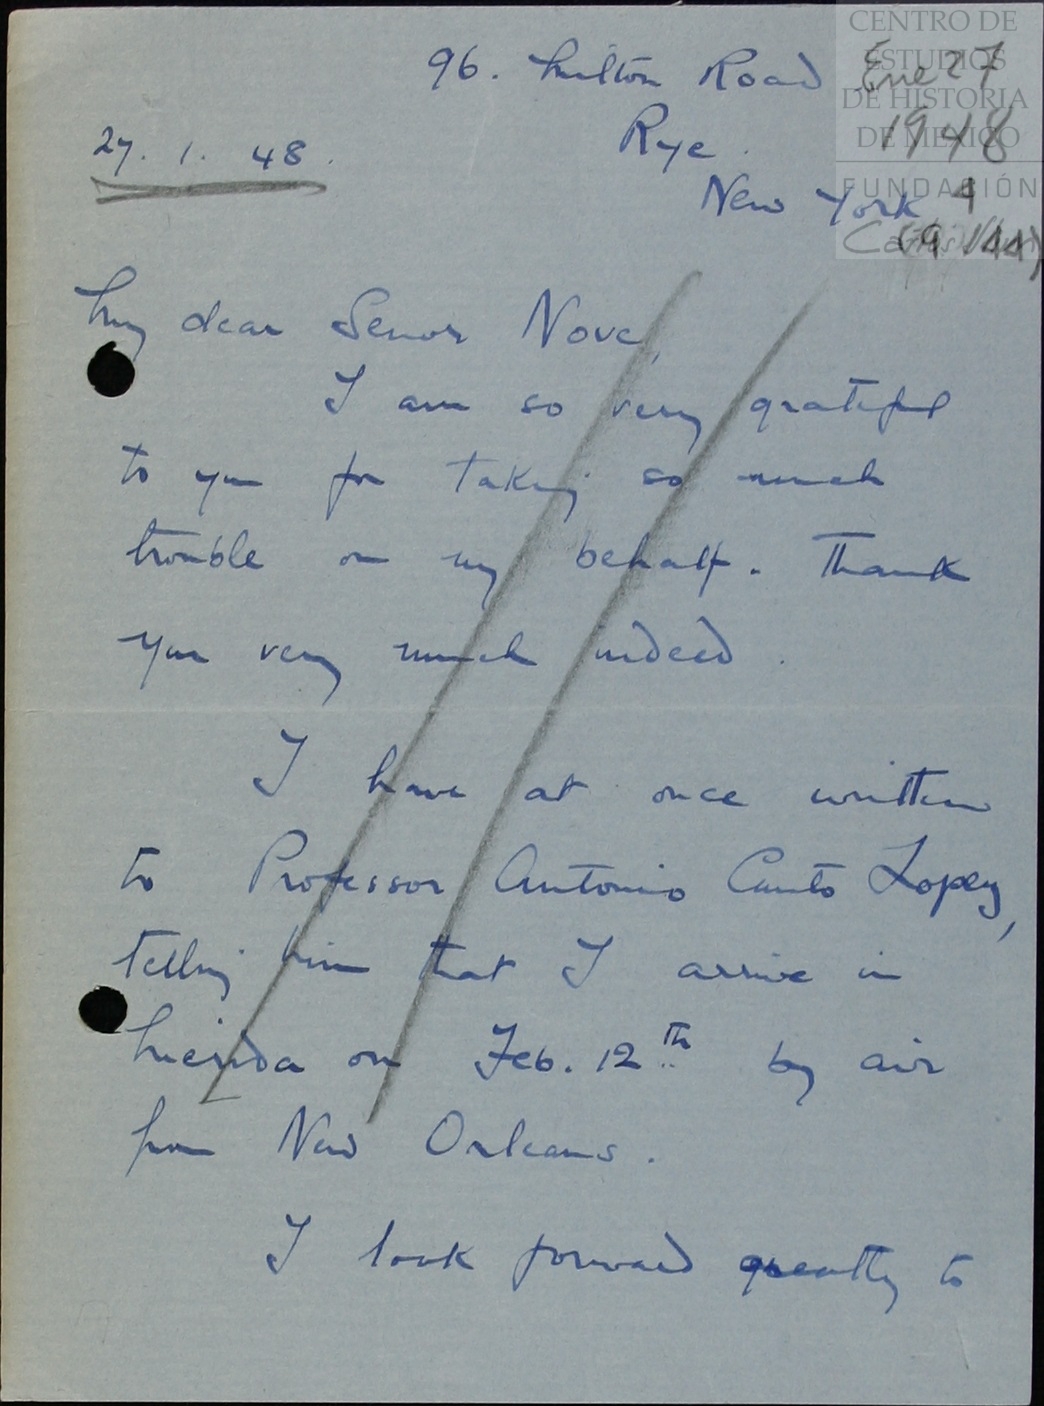 CENTRO DE
ESTUDIOS
DE HISTORIA
DE MEXICO
FUNDACIÓN
Ene 27
1948
96. Milton Road
Rye.
27. 1. 48.
New York
My dear Senor Nove,
I am so very grateful
to you for taking so much
trouble on my behalf. Thank
you very much indeed.
I have at once written
to Professor Antonio Canto Lopez,
telling him that I arrive in
Merida on Feb. 12th by air
from New Orleans.
I look forward greatly to